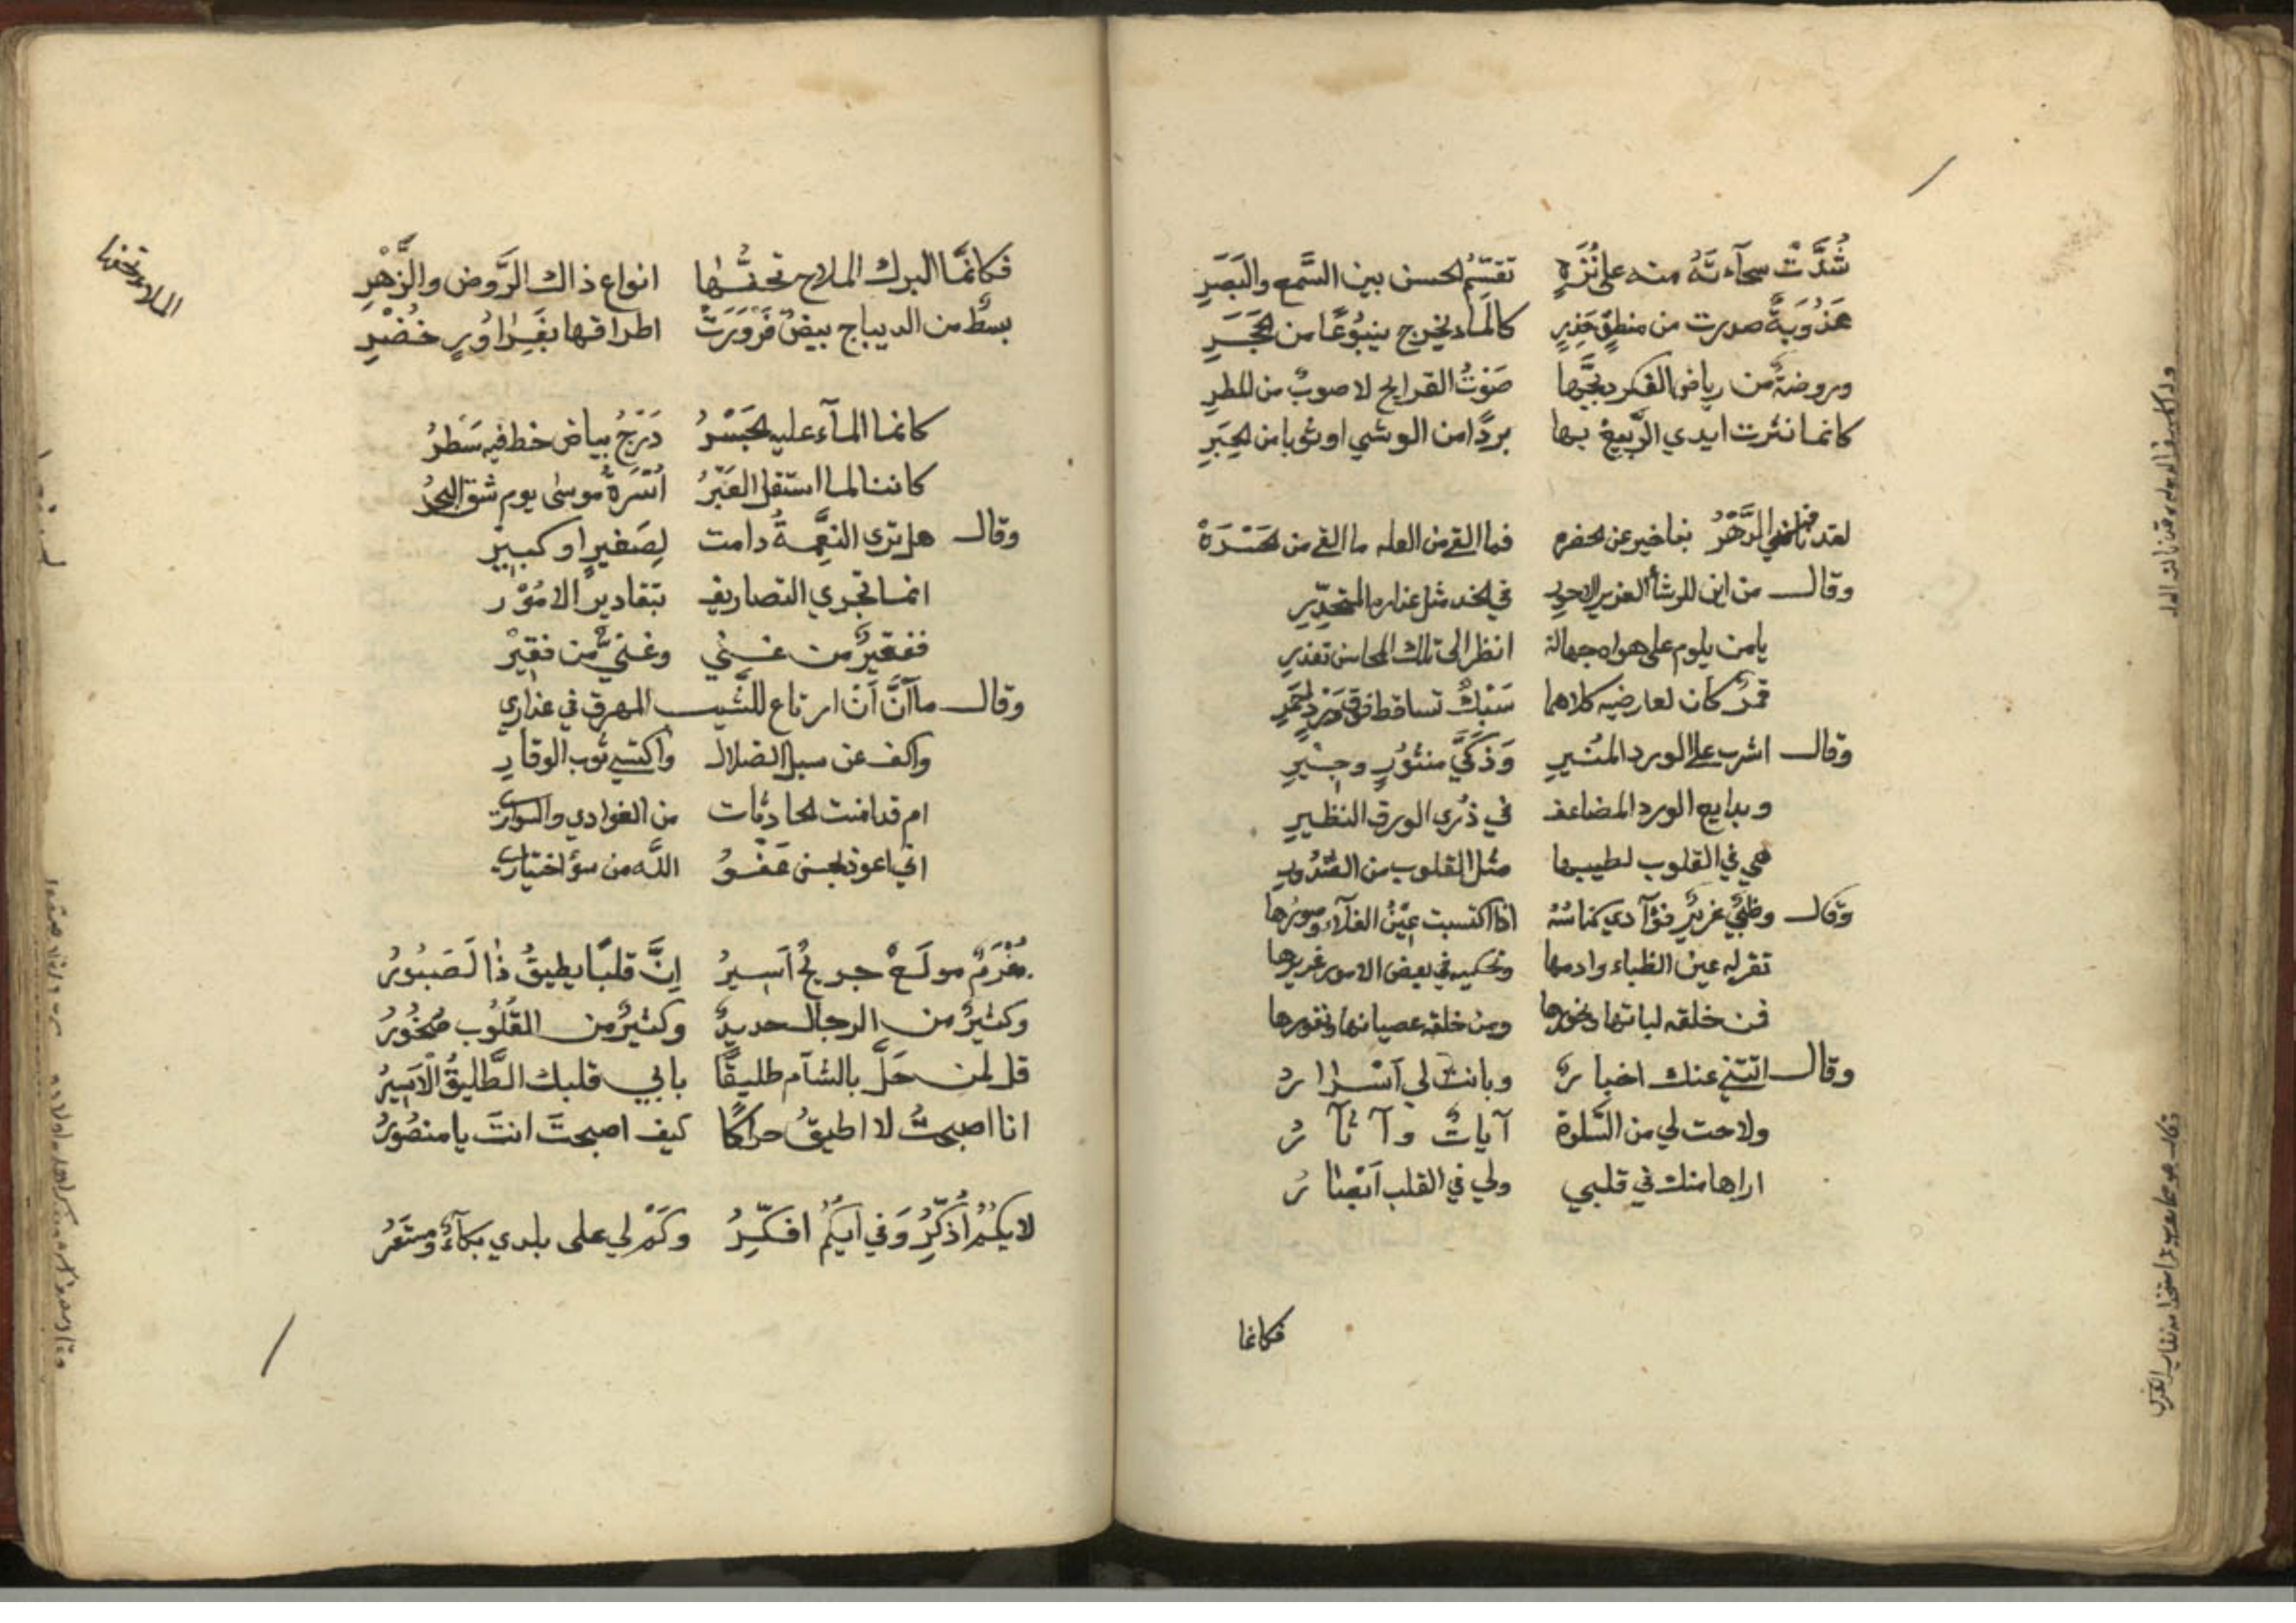 شُدَّتْ سحآءتهُ منه على نُزَهٍ تقسّم الحسن بين السَّمع والبَصَرِ
عذُوبَةٌ صدرت من منطقٍ كالمآء يخرج ينبُوعًا من الحَجَرِ
وروضةٌ من رياض الفكر دبَّجَها صَوْبُ القرايح لا صوبٌ من المطرِ
كانما نثرت ايدي الرَّبيع بها بردًا من الوشي او ثوبا من الحِبَرِ
لقد نافسني الدَّهْرُ بتاخير عن الحضره فما القى من العله ما القى من الحَسْرَهْ
وقال من اين للرشأ الغرير الاحورِ في الخد مثل عذاره المتحدِّرِ
يا من يلوم على هواه جهالة انظر الى تلك المحاسن تعذرِ
قمرٌ كان لعارضيه كلاهما تساقط فوق وردٍ
وقال اشرب على الورد المنيرِ منثورٍ
وبدايع الورد المضاعف في ذُرى الورق النظيرِ
هي في القلوب لطيبها مثل القلوب من الصُّدُورِ
وقال وظبيٌ غريرٌ فؤآدي كناسُهُ اذا اكتسبت عِيْنُ الفلآء وصورُها
تقر له عين الظباء وادمها وتحكيه في بعض الامور غريرُها
فمن خلقه لباتها ونحورها ومن خلقه عصيانها ونفورها
وقال اتتني عنك اخبارُ وبانت لي أسْرارُ
ولاحت لي من السَّلوة آياتٌ وآثآرُ
اراها منك في قلبي ولي في القلب أبْصارُ
فكانما
فكانمَّا البرك الملاح تحفُّها انواع ذاك الرَّوض والزَّهْرِ
بسطٌ من الديباج بيضٌ فرْوِزَتْ اطرافها بفَراوزٍ خُضْرِ
كانما المآء عليه الجَسْرُ دَرْجُ بياض خط فيه سَطْرُ
كاننا لما استقل العَبْرُ اُسْرَةُ موسى يوم شق البحرُ
وقال هل ترى النعمةُ دامت لِصَغيرٍ او كبيرِ
انما تجري التصاريف بتقادير الامُوْر
ففقيرٌ من غني وغنيٌّ من فقيْرْ
وقال ما آنَ أنْ ارتاع للشَّيب المفوق في عذاري
واكف عن سبل الضلال واكتسي ثوب الوقارِ
ام قد امنت الحادثات من الغوادي والسواري
اني اعوذ بحسن عَفْوِ الله من سوْ اختياري
مُغْرَمٌ مولَعٌ جريحٌ أسيرُ إنَّ قلبًا يطيقُ ذا لَصَبُورُ
وكثيرٌ من الرجال حديدٌ وكثيرٌ من القلُوب صُخُورُ
قل لمن حَلَّ بالشآم طليقًا بابي قلبك الطَّليقُ الأسِيرُ
انا اصبحتُ لا اطيقُ حراكًا كيف اصبحتَ انتَ يا منصُورُ
لايكُمُ أُذكِّرُ وَفي ايكُمُ افكّرُ وكَمْ لي على بلدي بكآءٌ ومستعبرُ